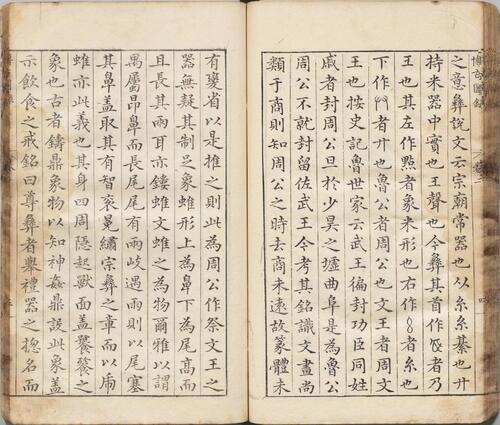 博古圖錄 卷二
之意彝說文云宗廟常器也从糸糸綦也廾
持米器中實也王聲也今彝其首作者乃
王也其左作點者象米形也右作者糸也
下作者廾也魯公者周公也文王者周文
王也按史記魯世家云武王徧封功臣同姓
戚者封周公旦於少昊之墟曲阜是為魯公
周公不就封留佐武王今考其銘識文畫尚
類于商則知周公之時去商未遠故篆體未
有夔省以是推之則此為周公作祭文王之
器無疑其制足象蜼形上為鼻下為尾高而
且長其兩耳亦鏤蜼文蜼之為物爾雅以謂
禺屬昂鼻而長尾尾有兩岐遇雨則以尾塞
其鼻盖取其有智衮冕繡宗彝之章而以虎
蜼亦此義也其身四周隱起獸面盖饕餮之
象也古者鑄鼎象物以知神姦鼎設此象盖
示飲食之戒銘曰尊彝者舉禮器之揔名而